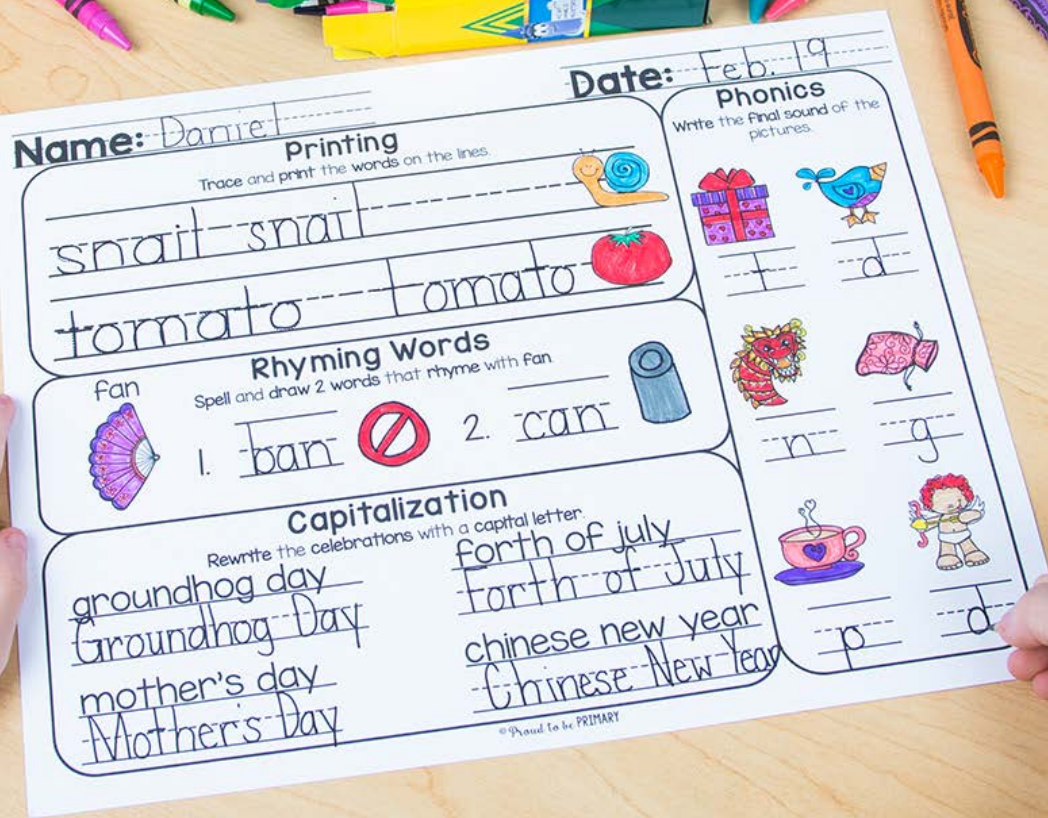 Name: Daniel
Date: Feb. 19
Printing
Trace and print the words on the lines.
snail snail
tomato tomato
Rhyming Words
Spell and draw 2 words that rhyme with fan.
fan
1. ban
2. can
Capitalization
Rewrite the celebrations with a capital letter.
groundhog day
Groundhog Day
mother's day
Mother's Day
forth of july
Forth of July
chinese new year
Chinese New Year
Phonics
Write the final sound of the
pictures.
t d
n g
p d
© Proud to be PRIMARY